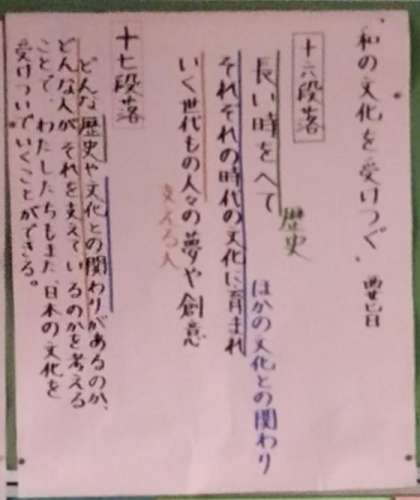 和の文化を受けつぐ
十六段落
長い時をへて
歴史
それぞれの時代の文化に育まれ
ほかの文化との関わり
いく世代もの人々の夢や創意
支える人
十七段落
どんな歴史や文化との関わりがあるのか、
どんな人がそれを支えているのかを考える
ことで、わたしたちもまた、日本の文化を
受けついでいくことができる。